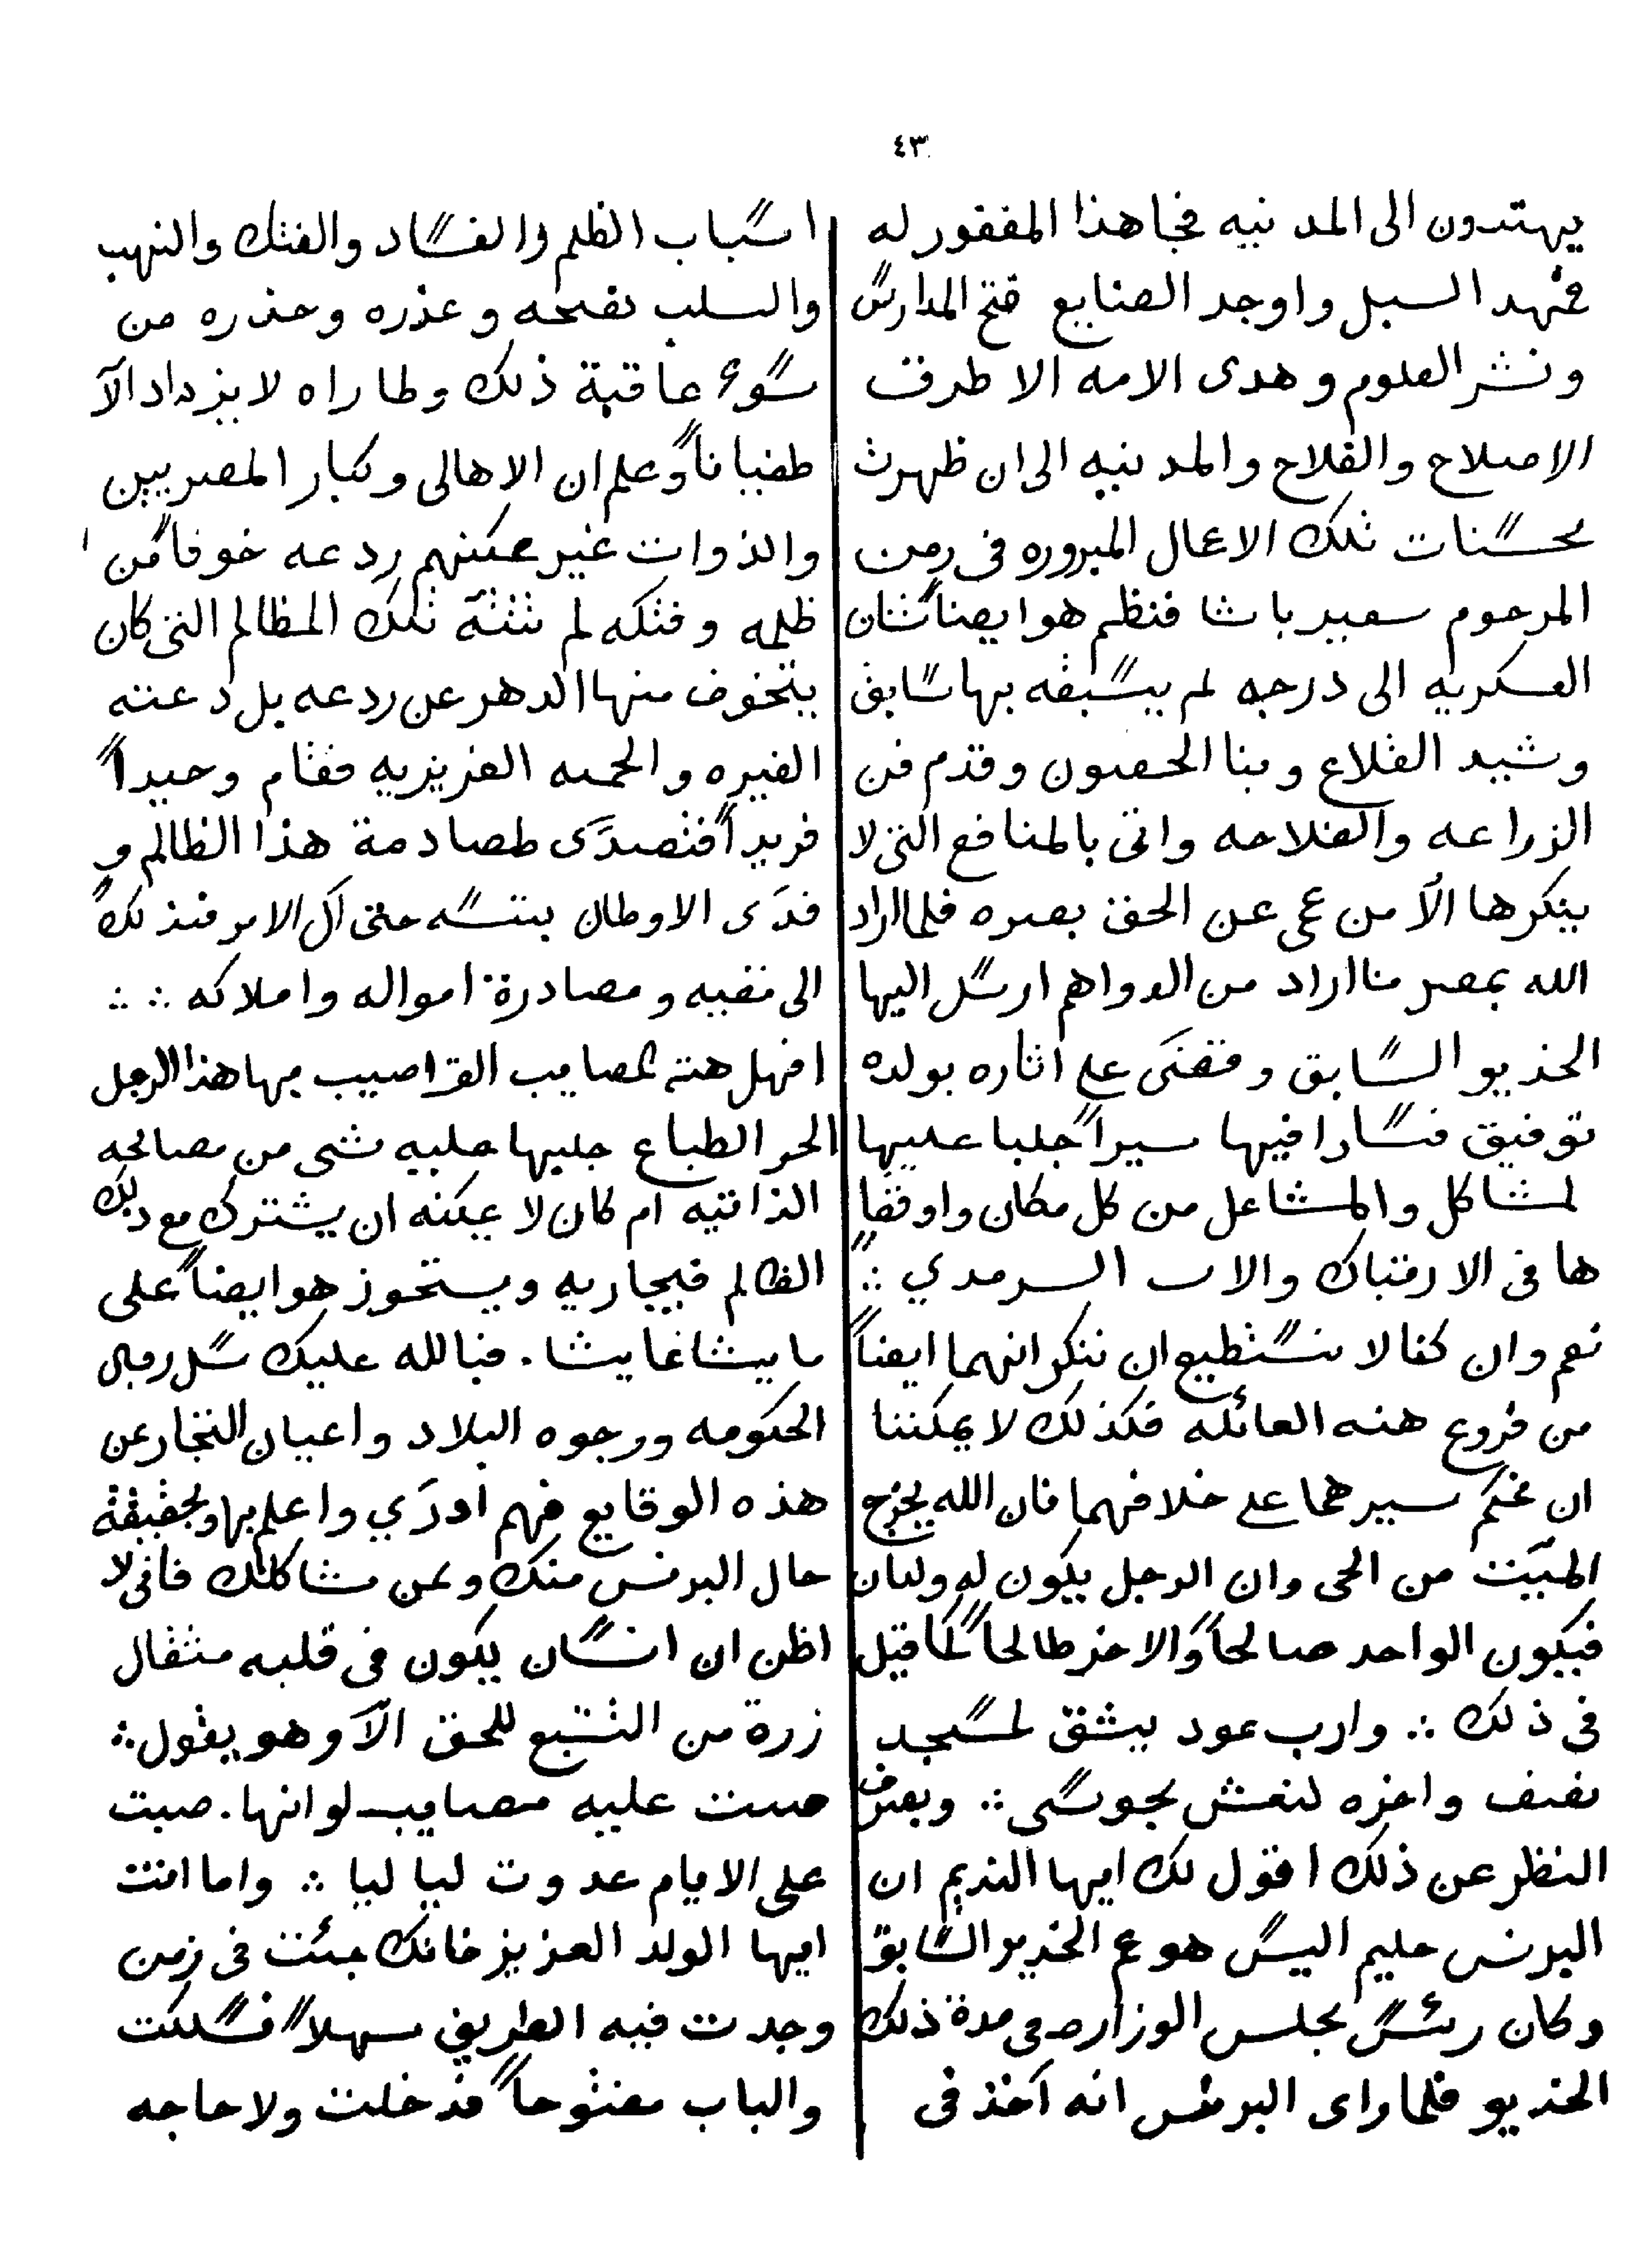 ٤٣
يهتدون الى المدنيه فجا هذا المغفور له
فمهد السبل واوجد الصنايع فتح المدارس
ونشر العلوم وهدى الامه الا طرق
الاصلاح والفلاح والمدنيه الى ان ظهرت
محسنات تلك الاعمال المبروره فى زمن
المرحوم سعيد باشا فنظم هو ايضاً شان
العسكريه الى درجه لم يسبقه بها سابق
وشيد القلاع وبنا الحصون وقدم فن
الزراعه والفلاحه واتى بالمنافع التى لا
ينكرها الاّ من عمى عن الحق بصره فلما اراد
الله بمصر ما اراد من الدواهم ارسل اليها
الخديو السابق وقفى على اثاره بولده
توفيق فسارا فيها سيراً جلبا عليها
لمشاكل والمشاعل من كل مكان واوقفا
ها فى الارتباك والاب السرمدي ∴
نعم وان كنا لا نستطيع ان ننكر انهما ايضاً
من فروع هذه العائله فكذلك لا يمكننا
ان نحكم سيرهما على خلافهما فان الله يخرج
الميّت من الحى وان الرجل يكون له ولدان
فيكون الواحد صالحاً والاخر طالحاً كما قيل
فى ذلك ∴ وارب عود يشق لمسجد
نصف واخره لنعش مجوسى ∴ وبصرف
النظر عن ذلك اقول لك ايها النديم ان
البرنس حليم اليس هو عم الخديو السابق
وكان رئس مجلس الوزاره فى مدة ذلك
الخديو فلما راى البرنس انه آخذ فى
اسباب الظلم والفساد والفتك والنهب
والسلب نصحه وعذره وحذره من
سوء عاقبة ذلك ولما راه لا يزداد الاّ
طغياناً وعلم ان الاهالى وكبار المصريين
والذوات غير ممكنهم ردعه خوفاً من
ظلمه وفتكه لم تثنه تلك المظالم التى كان
يتخوف منها الدهر عن ردعه بل دعته
الغيره والحميه العزيزيه فقام وحيداً
فريداً فتصدّى لمصادمة هذا الظالم و
فدّى الاوطان بنفسه حتى آل الامر فى ذلك
الى نفيه ومصادرة امواله واملاكه ∴ ∴
افهل هذه المصايب التى اصيب بها هذا الرجل
الحر الطباع جلبها عليه شى من مصالحه
الذاتيه ام كان لا يمكنه ان يشترك مع ذلك
الظالم فيجاريه ويستحوز هو ايضاً على
ما يشا غا يشا . فبالله عليك سل رجال
الحكومه ووجوه البلاد واعيان التجار عن
هذه الوقايع فهم ادرَي واعلم بها وبحقيقة
حال البرنس منك وعن مشاكلك فانى لا
اظن ان انسان يكون فى قلبه مثقال
زرة من التشبع للحق الاّ وهو يقول ∴
صبت عليه مصايب لو انها . صبت
على الايام عدوت ليا ليا ∴ واما انت
ايها الولد العزيز فانك جئت فى زمن
وجدت فيه الطريق سهلاً فسلكت
والباب مفتوحاً فدخلت ولا حاجه